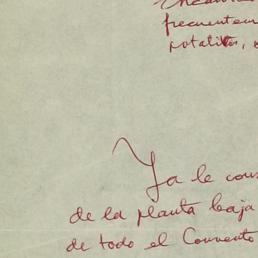 frecuentem
Ya le cons
de la planta baja
de todo el Convento